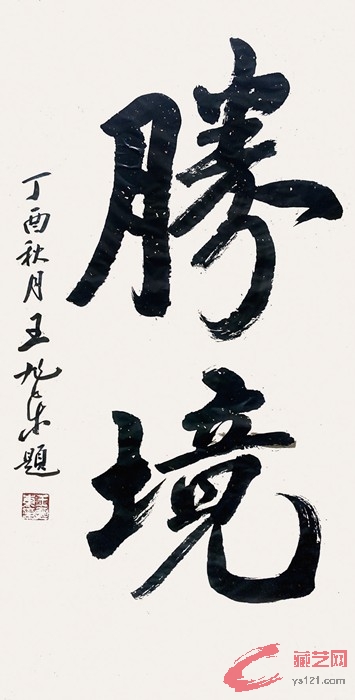 勝境
丁酉秋月王旭东題
藏艺网
ys121.com